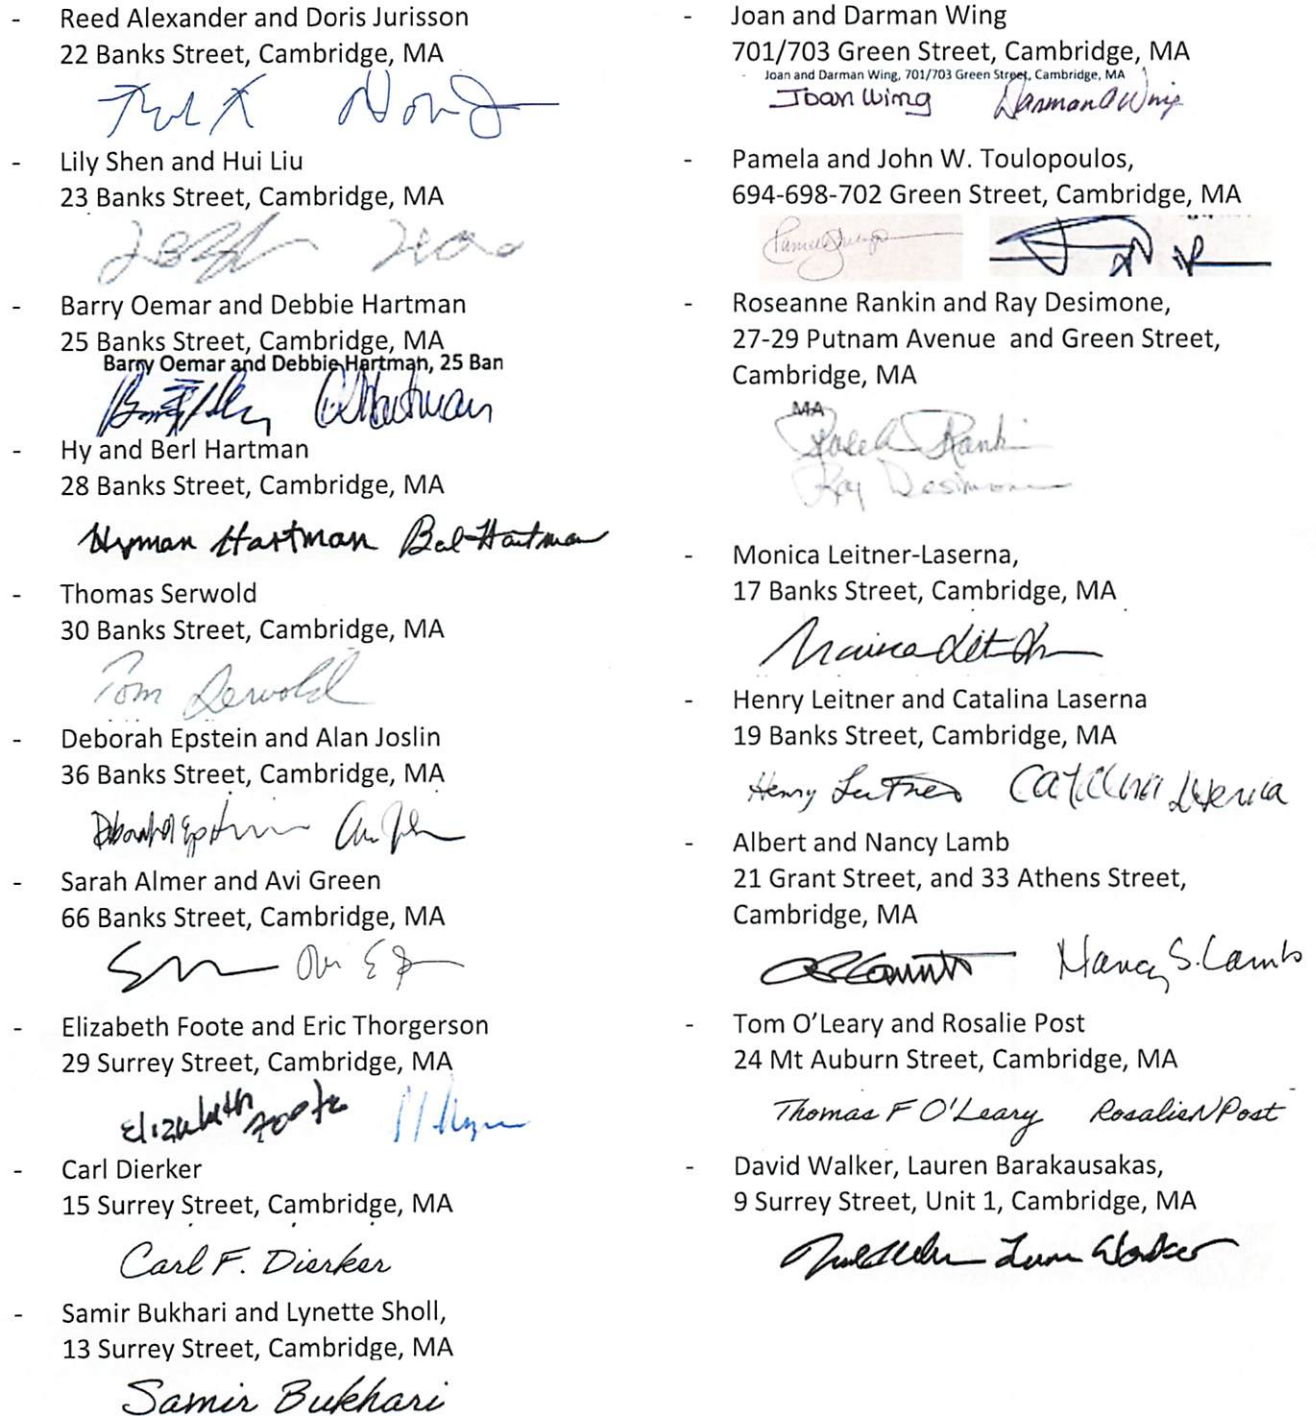 - Reed Alexander and Doris Jurisson
22 Banks Street, Cambridge, MA
- Lily Shen and Hui Liu
23 Banks Street, Cambridge, MA
- Barry Oemar and Debbie Hartman
25 Banks Street, Cambridge, MA
Barry Oemar and Debbie Hartman, 25 Ban
Hartman
- Hy and Berl Hartman
28 Banks Street, Cambridge, MA
Hyman Hartman Berl Hartman
- Thomas Serwold
30 Banks Street, Cambridge, MA
Tom Serwold
- Deborah Epstein and Alan Joslin
36 Banks Street, Cambridge, MA
Deborah Epstein
- Sarah Almer and Avi Green
66 Banks Street, Cambridge, MA
- Elizabeth Foote and Eric Thorgerson
29 Surrey Street, Cambridge, MA
Elizabeth Foote
- Carl Dierker
15 Surrey Street, Cambridge, MA
Carl F. Dierker
- Samir Bukhari and Lynette Sholl,
13 Surrey Street, Cambridge, MA
Samir Bukhari
- Joan and Darman Wing
701/703 Green Street, Cambridge, MA
Joan and Darman Wing, 701/703 Green Street, Cambridge, MA
Joan Wing Darman A Wing
- Pamela and John W. Toulopoulos,
694-698-702 Green Street, Cambridge, MA
- Roseanne Rankin and Ray Desimone,
27-29 Putnam Avenue and Green Street,
Cambridge, MA
MA
Rankin
Ray Desimone
- Monica Leitner-Laserna,
17 Banks Street, Cambridge, MA
- Henry Leitner and Catalina Laserna
19 Banks Street, Cambridge, MA
Henry Leitner Catalina Laserna
- Albert and Nancy Lamb
21 Grant Street, and 33 Athens Street,
Cambridge, MA
Nancy S. Lamb
- Tom O'Leary and Rosalie Post
24 Mt Auburn Street, Cambridge, MA
Thomas F O'Leary Rosalie N Post
- David Walker, Lauren Barakausakas,
9 Surrey Street, Unit 1, Cambridge, MA